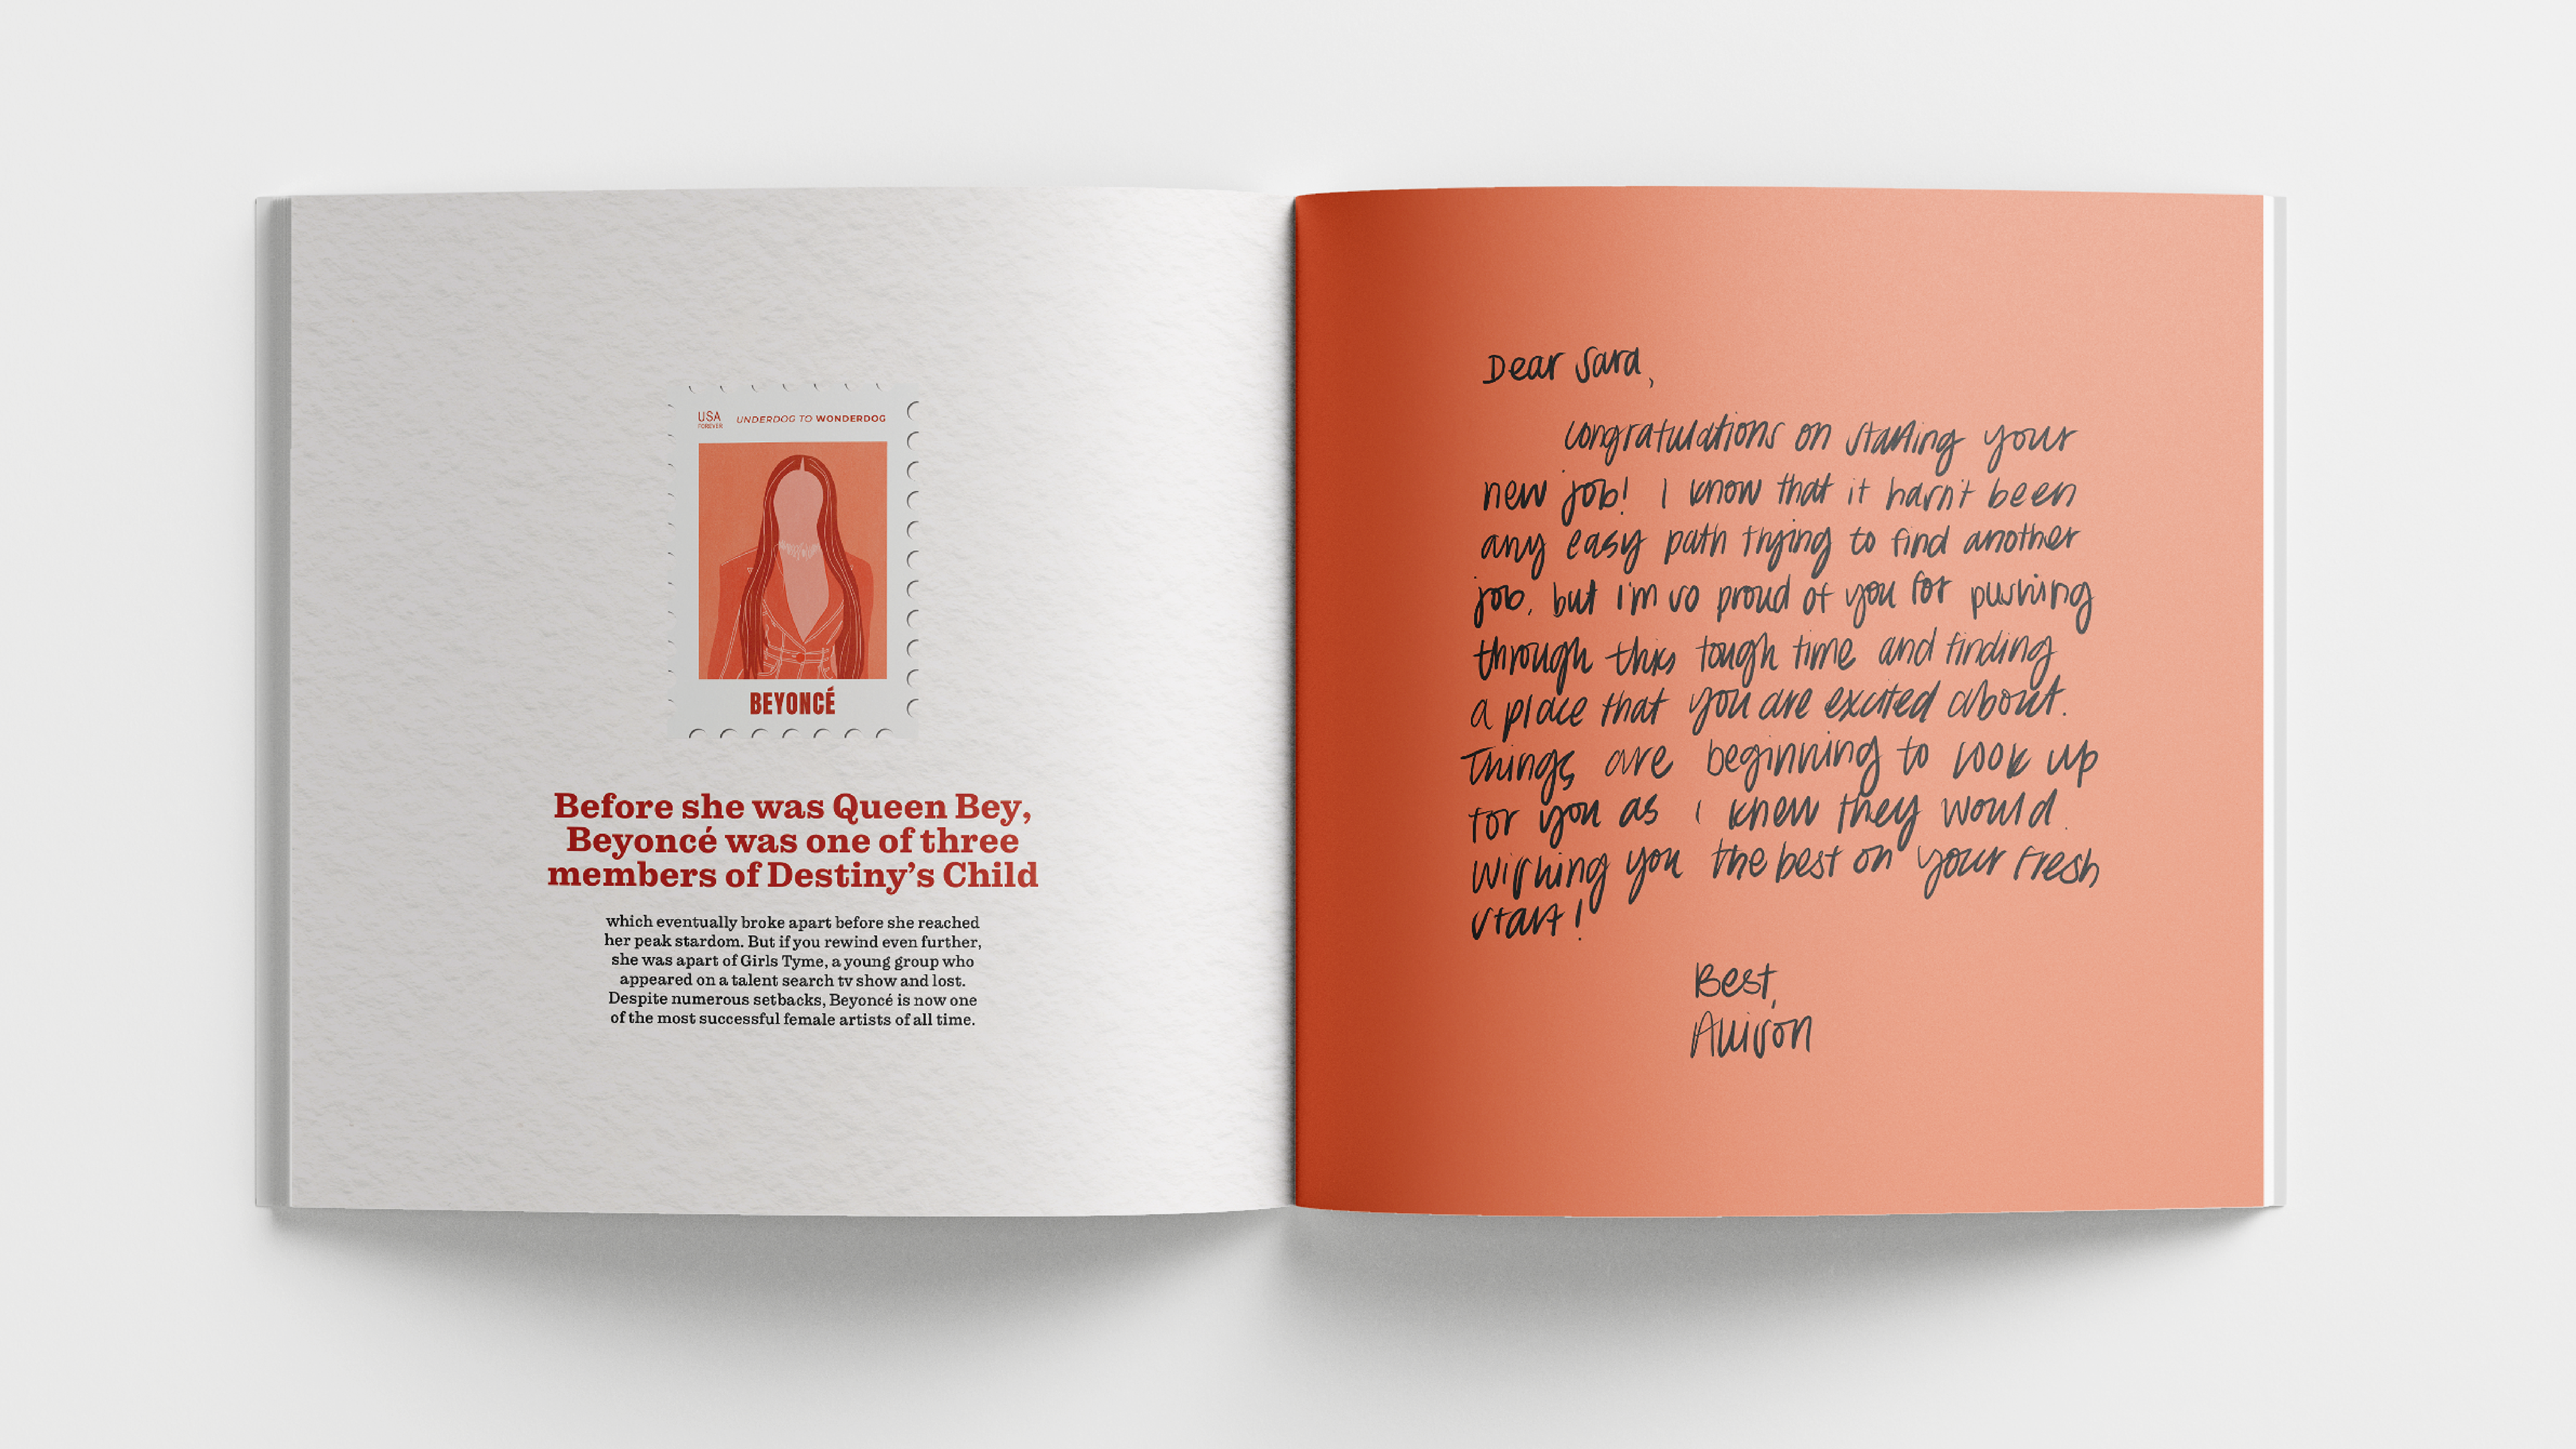 USA
FOREVER
UNDERDOG TO WONDERDOG
BEYONCÉ
Before she was Queen Bey,
Beyoncé was one of three
members of Destiny's Child
which eventually broke apart before she reached
her peak stardom. But if you rewind even further,
she was apart of Girls Tyme, a young group who
appeared on a talent search tv show and lost.
Despite numerous setbacks, Beyoncé is now one
of the most successful female artists of all time.
Dear Sara,
congratulations on starting your
new job! I know that it hasn't been
any easy path trying to find another
job, but I'm so proud of you for pushing
through this tough time and finding
a place that you are excited about.
Things are beginning to look up
for you as I knew they would.
Wishing you the best on your fresh
start!
Best,
Allison